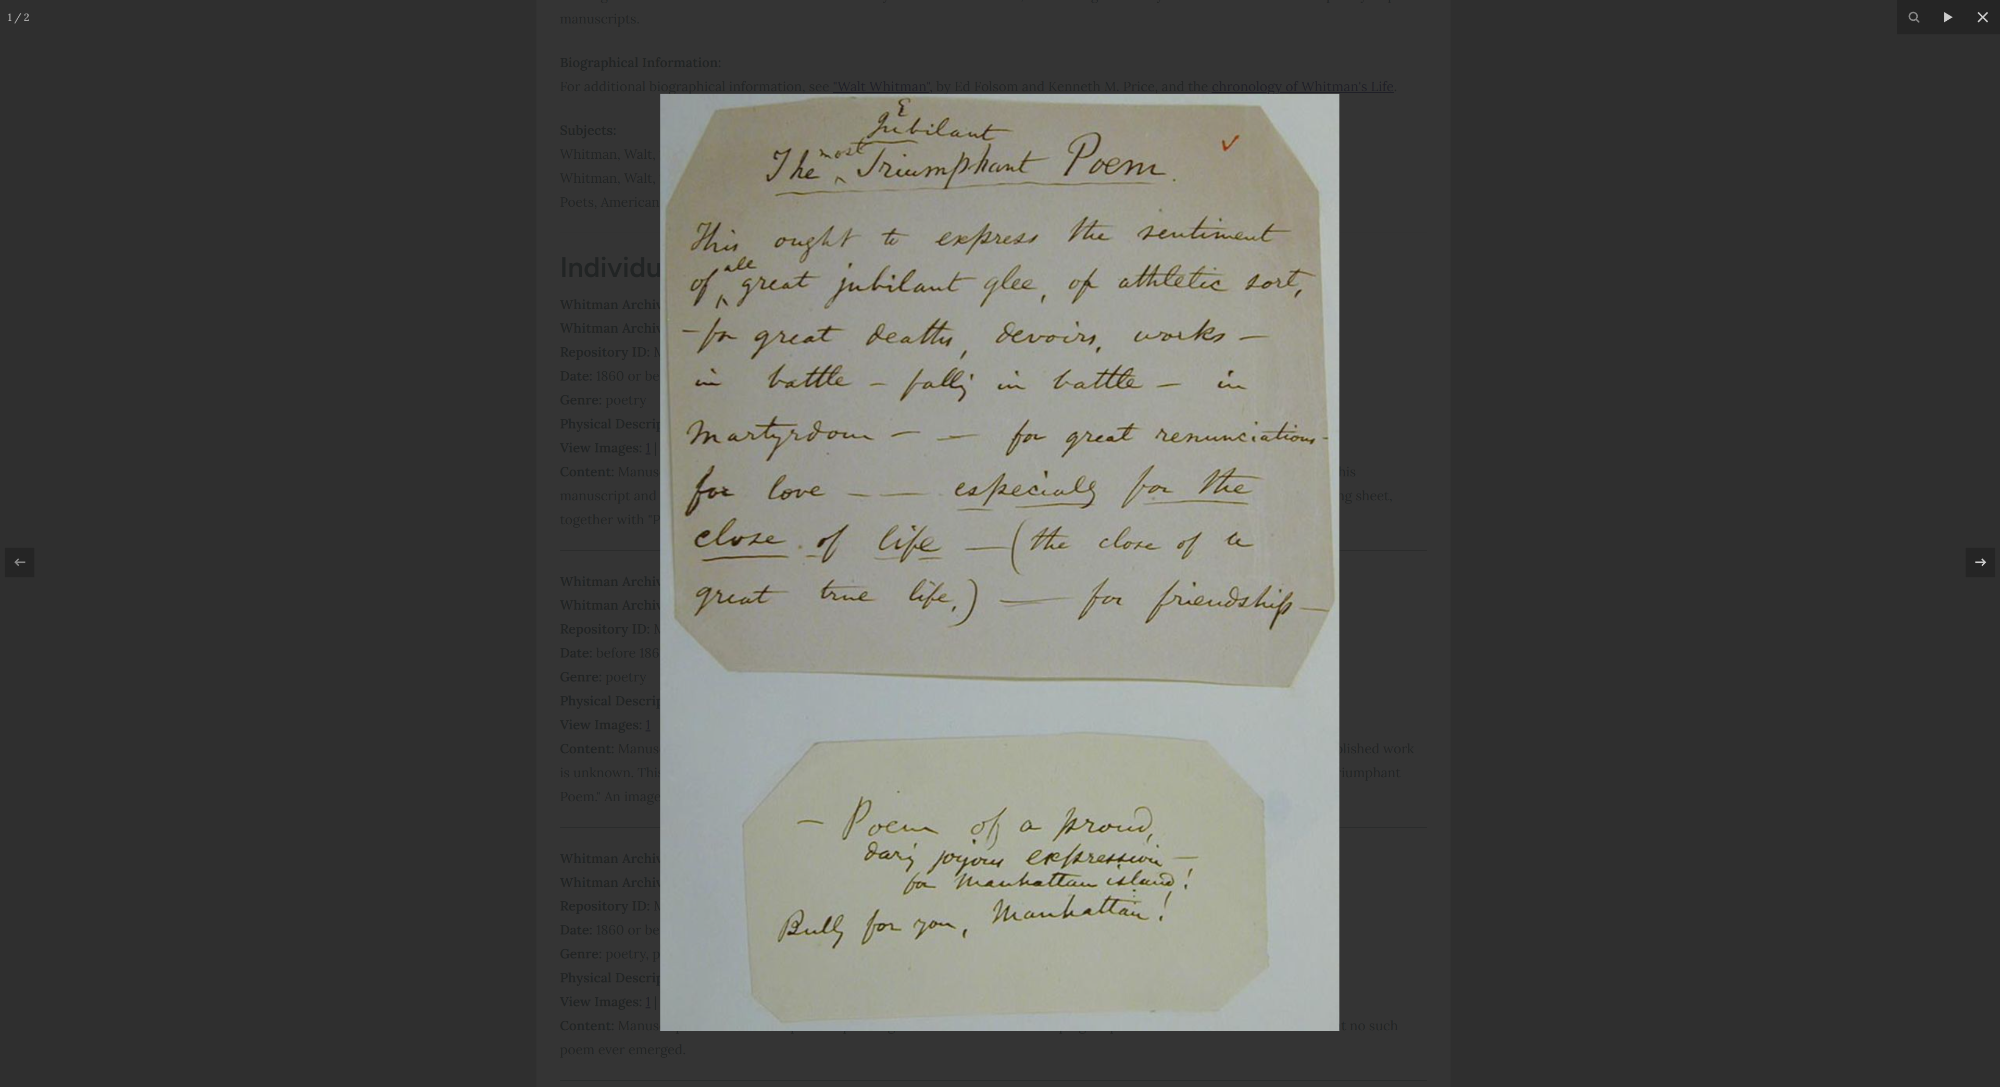 1 / 2
manuscripts.
Biographical Information:
For additional biographical information, see "Walt Whitman", by Ed Folsom and Kenneth M. Price, and the chronology of Whitman's Life.
Subjects:
Whitman, Walt,
Whitman, Walt,
Poets, American
Individu
Whitman Archiv
Whitman Archiv
Repository ID: M
Date: 1860 or be
Genre: poetry
Physical Descrip
View Images: 1 |
Content: Manus
manuscript and
together with "P
his
g sheet,
Jubilant
The most Triumphant Poem.
This ought to express the sentiment
of all great jubilant glee, of athletic sort,
—for great deaths, devoirs, works —
in battle — falling in battle — in
martyrdom — — for great renunciations—
for love — — especially for the
close of life — (the close of a
great true life,) — for friendship—
Whitman Archiv
Whitman Archiv
Repository ID: M
Date: before 186
Genre: poetry
Physical Descrip
View Images: 1
Content: Manus
is unknown. This
Poem." An image
blished work
riumphant
— Poem of a proud,
daring joyous expression —
for Manhattan island!
Bully for you, Manhattan!
Whitman Archiv
Whitman Archiv
Repository ID: M
Date: 1860 or be
Genre: poetry, p
Physical Descrip
View Images: 1 |
Content: Manus
poem ever emerged.
t no such